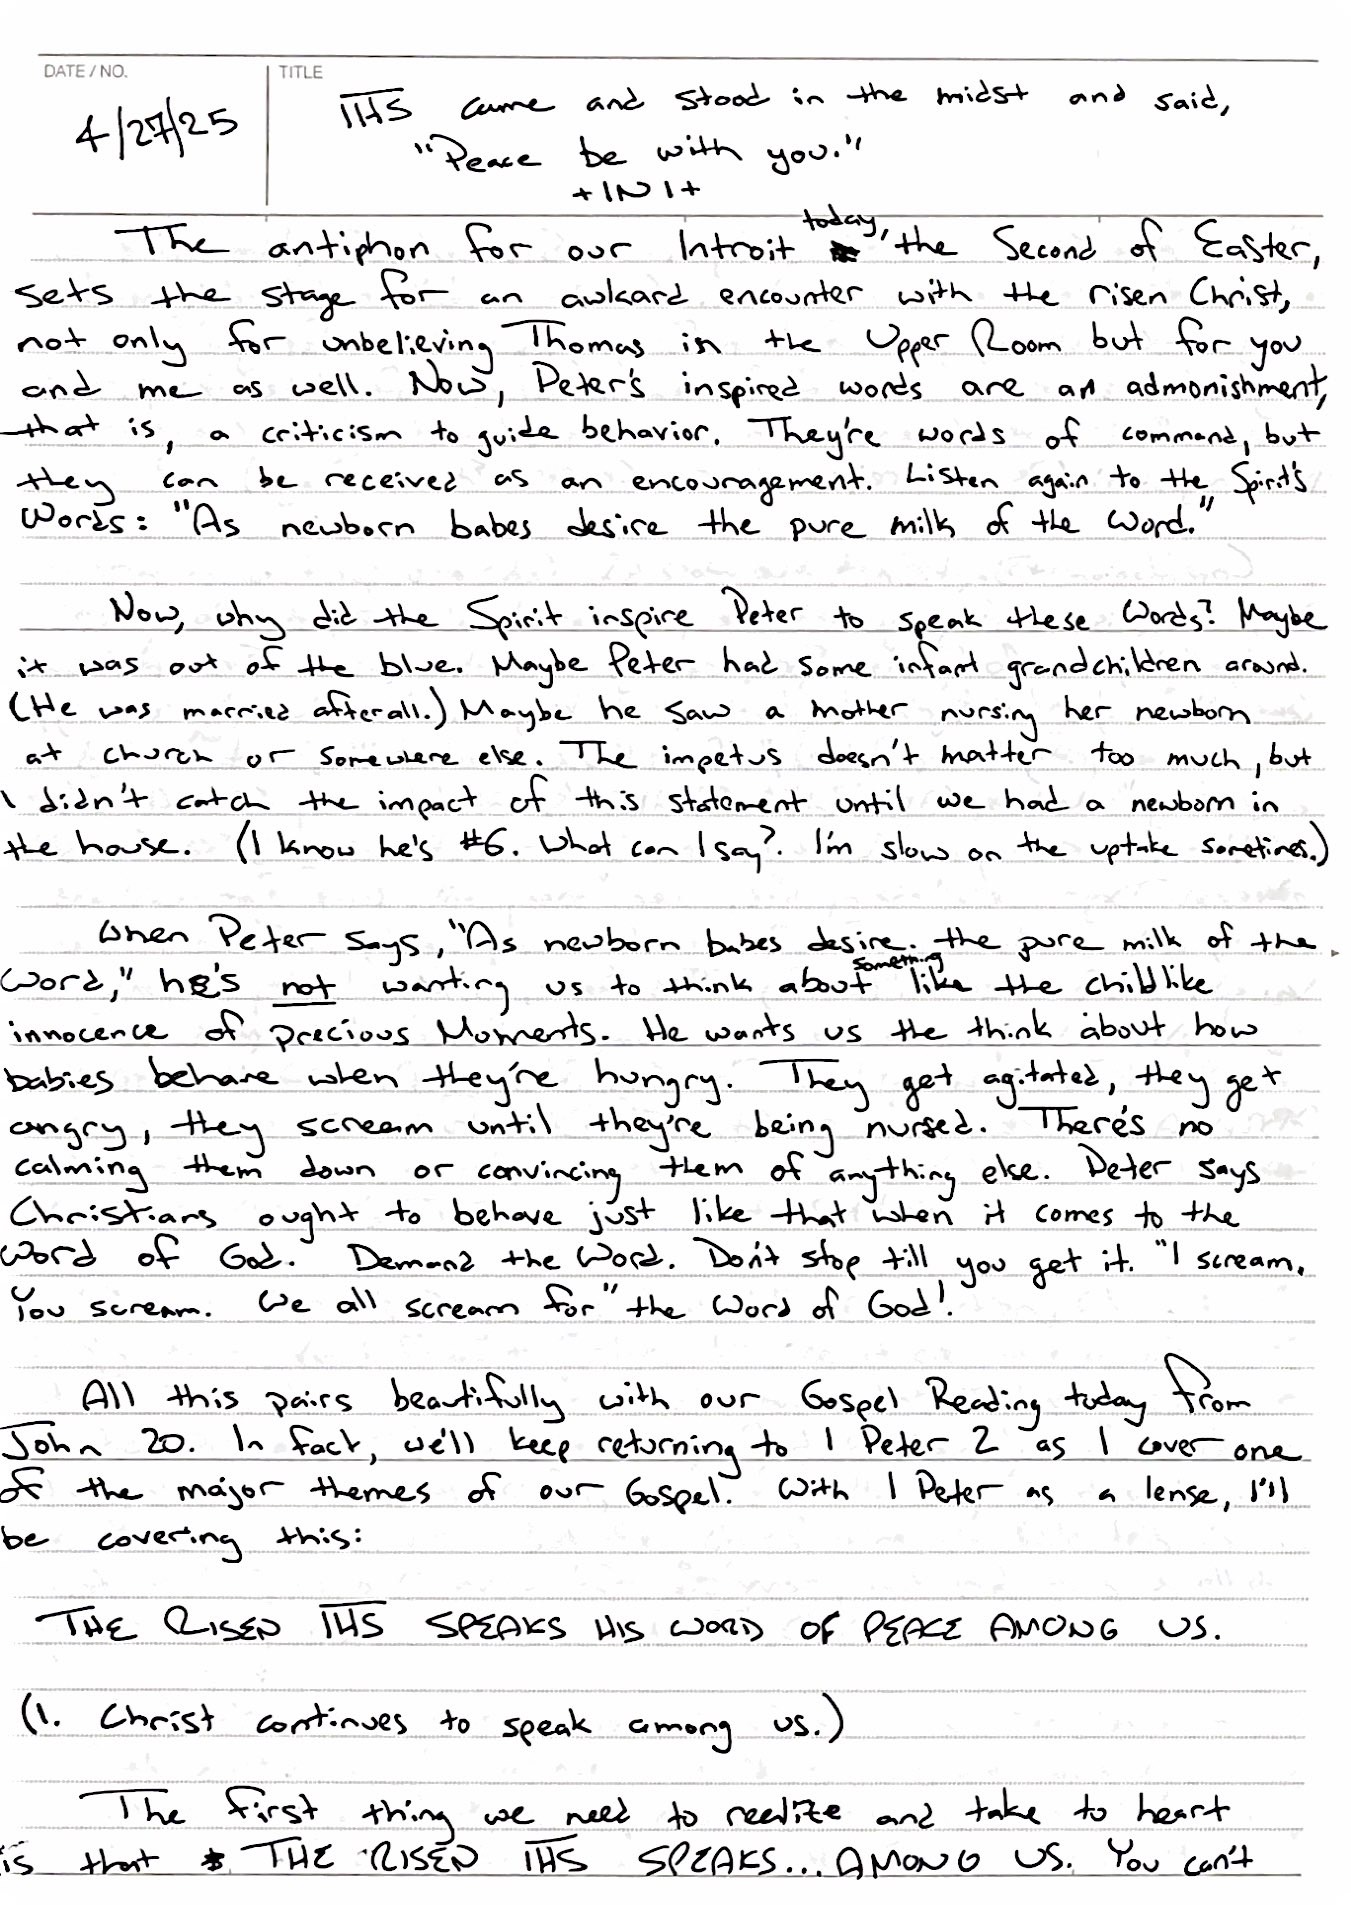 DATE / NO.
TITLE
4/27/25
IHS came and stood in the midst and said,
"Peace be with you."
+INI+
The antiphon for our Introit today, the Second of Easter,
sets the stage for an awkard encounter with the risen Christ,
not only for unbelieving Thomas in the Upper Room but for you
and me as well. Now, Peter's inspired words are an admonishment,
that is, a criticism to guide behavior. They're words of command, but
they can be received as an encouragement. Listen again to the Spirit's
Words: "As newborn babes desire the pure milk of the Word."
Now, why did the Spirit inspire Peter to speak these Words? Maybe
it was out of the blue. Maybe Peter had some infant grandchildren around.
(He was married afterall.) Maybe he saw a mother nursing her newborn
at church or somewhere else. The impetus doesn't matter too much, but
I didn't catch the impact of this statement until we had a newborn in
the house. (I know he's #6. What can I say? I'm slow on the uptake sometimes.)
When Peter says, "As newborn babes desire the pure milk of the
Word," he's not wanting us to think about something like the childlike
innocence of Precious Moments. He wants us the think about how
babies behave when they're hungry. They get agitated, they get
angry, they scream until they're being nursed. There's no
calming them down or convincing them of anything else. Peter says
Christians ought to behave just like that when it comes to the
Word of God. Demand the Word. Don't stop till you get it. "I scream.
You scream. We all scream for" the Word of God!
All this pairs beautifully with our Gospel Reading today from
John 20. In fact, we'll keep returning to 1 Peter 2 as I cover one
of the major themes of our Gospel. With 1 Peter as a lense, I'll
be covering this:
THE RISEN IHS SPEAKS HIS WORD OF PEACE AMONG US.
(1. Christ continues to speak among us.)
The first thing we need to realize and take to heart
is that THE RISEN IHS SPEAKS... AMONG US. You can't